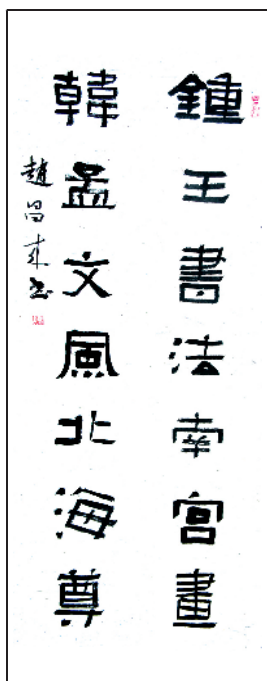 鍾王書法南宮畫
韓孟文風北海尊
趙昌来書